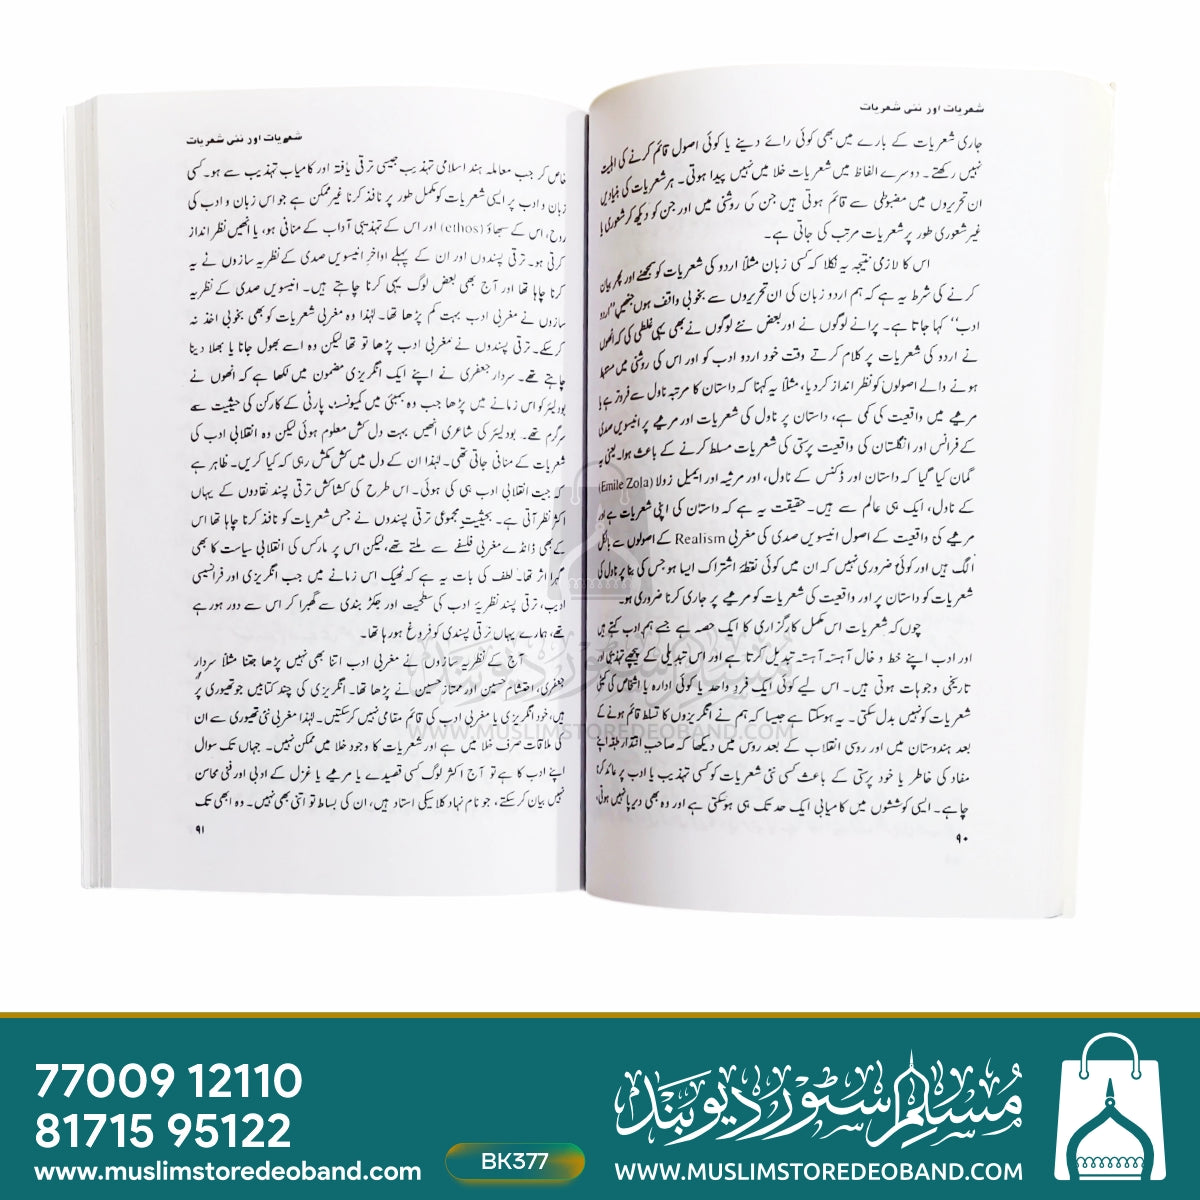 شعریات اور نئی شعریات
جاری شعریات کے بارے میں بھی کوئی رائے دینے یا کوئی اصول قائم کرنے کی اہلیت
نہیں رکھتے۔ دوسرے الفاظ میں شعریات خلا میں نہیں پیدا ہوتی۔ ہر شعریات کی بنیادیں
ان تحریروں میں مضبوطی سے قائم ہوتی ہیں جن کی روشنی میں اور جن کو دیکھ کر شعوری یا
غیر شعوری طور پر شعریات مرتب کی جاتی ہے۔
اس کا لازمی نتیجہ یہ نکلا کہ کسی زبان مثلاً اردو کی شعریات کو سمجھنے اور پھر بیان
کرنے کی شرط یہ ہے کہ ہم اردو زبان کی ان تحریروں سے بخوبی واقف ہوں جنھیں ''اردو
ادب'' کہا جاتا ہے۔ پرانے لوگوں نے اور بعض نئے لوگوں نے بھی یہی غلطی کی کہ انھوں
نے اردو کی شعریات پر کلام کرتے وقت خود اردو ادب کو اور اس کی روشنی میں مستنبط
ہونے والے اصولوں کو نظر انداز کر دیا، مثلاً یہ کہنا کہ داستان کا مرتبہ ناول سے فروتر ہے یا
مرثیے میں واقعیت کی کمی ہے، داستان پر ناول کی شعریات اور مرثیے پر انیسویں صدی
کے فرانس اور انگلستان کی واقعیت پرستی کی شعریات مسلط کرنے کے باعث ہوا۔ یعنی یہ
گمان کیا گیا کہ داستان اور ڈکنس کے ناول، اور مرثیہ اور ایمیل زولا (Emile Zola)
کے ناول، ایک ہی عالم سے ہیں۔ حقیقت یہ ہے کہ داستان کی اپنی شعریات ہے اور
مرثیے کی واقعیت کے اصول انیسویں صدی کی مغربی Realism کے اصولوں سے بالکل
الگ ہیں اور کوئی ضروری نہیں کہ ان میں کوئی نقطۂ اشتراک ایسا ہو جس کی بنا پر ناول کی
شعریات کو داستان پر اور واقعیت کی شعریات کو مرثیے پر جاری کرنا ضروری ہو۔
چوں کہ شعریات اس مکمل کارگزاری کا ایک حصہ ہے جسے ہم ادب کہتے ہیں
اور ادب اپنے خط و خال آہستہ آہستہ تبدیل کرتا ہے اور اس تبدیلی کے پیچھے تہذیبی اور
تاریخی وجوہات ہوتی ہیں۔ اس لیے کوئی ایک فرد واحد یا کوئی ادارہ یا اشخاص کی کمیٹی
شعریات کو نہیں بدل سکتی۔ یہ ہو سکتا ہے جیسا کہ ہم نے انگریزوں کا تسلط قائم ہونے کے
بعد ہندوستان میں اور روسی انقلاب کے بعد روس میں دیکھا کہ صاحب اقتدار طبقہ اپنے
مفاد کی خاطر یا خود پرستی کے باعث کسی نئی شعریات کو کسی تہذیب یا ادب پر عائد کرنا
چاہے۔ ایسی کوششوں میں کامیابی ایک حد تک ہی ہو سکتی ہے اور وہ بھی دیرپا نہیں ہوتی،
۹۰
شعریات اور نئی شعریات
خاص کر جب معاملہ ہند اسلامی تہذیب جیسی ترقی یافتہ اور کامیاب تہذیب سے ہو۔ کسی
زبان و ادب پر ایسی شعریات کو مکمل طور پر نافذ کرنا غیر ممکن ہے جو اس زبان و ادب کی
روح، اس کے سبھاؤ (ethos) اور اس کے تہذیبی آداب کے منافی ہو، یا انھیں نظر انداز
کرتی ہو۔ ترقی پسندوں اور ان کے پہلے اواخر انیسویں صدی کے نظریہ سازوں نے یہ
کرنا چاہا تھا اور آج بھی بعض لوگ یہی کرنا چاہتے ہیں۔ انیسویں صدی کے نظریہ
سازوں نے مغربی ادب بہت کم پڑھا تھا۔ لہٰذا وہ مغربی شعریات کو بھی بخوبی اخذ نہ
کر سکے۔ ترقی پسندوں نے مغربی ادب پڑھا تو تھا لیکن وہ اسے بھول جانا یا بھلا دینا
چاہتے تھے۔ سردار جعفری نے اپنے ایک انگریزی مضمون میں لکھا ہے کہ انھوں نے
بودلیئر کو اس زمانے میں پڑھا جب وہ بمبئی میں کمیونسٹ پارٹی کے کارکن کی حیثیت سے
سرگرم تھے۔ بودلیئر کی شاعری انھیں بہت دل کش معلوم ہوئی لیکن وہ انقلابی ادب کی
شعریات کے منافی جاتی تھی۔ لہٰذا ان کے دل میں کش مکش رہی کہ کیا کریں۔ ظاہر ہے
کہ جیت انقلابی ادب ہی کی ہوئی۔ اس طرح کی کشاکش ترقی پسند نقادوں کے یہاں
اکثر نظر آتی ہے۔ بحیثیت مجموعی ترقی پسندوں نے جس شعریات کو نافذ کرنا چاہا تھا اس
کے بھی ڈانڈے مغربی فلسفے سے ملتے تھے، لیکن اس پر مارکس کی انقلابی سیاست کا بھی
گہرا اثر تھا۔ لطف کی بات یہ ہے کہ ٹھیک اس زمانے میں جب انگریزی اور فرانسیسی
ادیب، ترقی پسند نظریۂ ادب کی سطحیت اور جکڑ بندی سے گھبرا کر اس سے دور ہو رہے
تھے، ہمارے یہاں ترقی پسندی کو فروغ ہو رہا تھا۔
آج کے نظریہ سازوں نے مغربی ادب اتنا بھی نہیں پڑھا جتنا مثلاً سردار
جعفری، احتشام حسین اور ممتاز حسین نے پڑھا تھا۔ انگریزی کی چند کتابیں جو تھیوری پر
ہیں، خود انگریزی یا مغربی ادب کی قائم مقامی نہیں کر سکتیں۔ لہٰذا مغربی نئی تھیوری سے ان
کی ملاقات صرف خلا میں ہے اور شعریات کا وجود خلا میں ممکن نہیں۔ جہاں تک سوال
اپنے ادب کا ہے تو آج اکثر لوگ کسی قصیدے یا مرثیے یا غزل کے ادبی اور فنی محاسن
نہیں بیان کر سکتے، جو نام نہاد کلاسیکی استاد ہیں، ان کی بساط تو اتنی بھی نہیں۔ وہ ابھی تک
۹۱
مسلم سٹور دیوبند
WWW.MUSLIMSTOREDEOBAND.COM
77009 12110
81715 95122
www.muslimstoredeoband.com
BK377
مسلم سٹور دیوبند
WWW.MUSLIMSTOREDEOBAND.COM